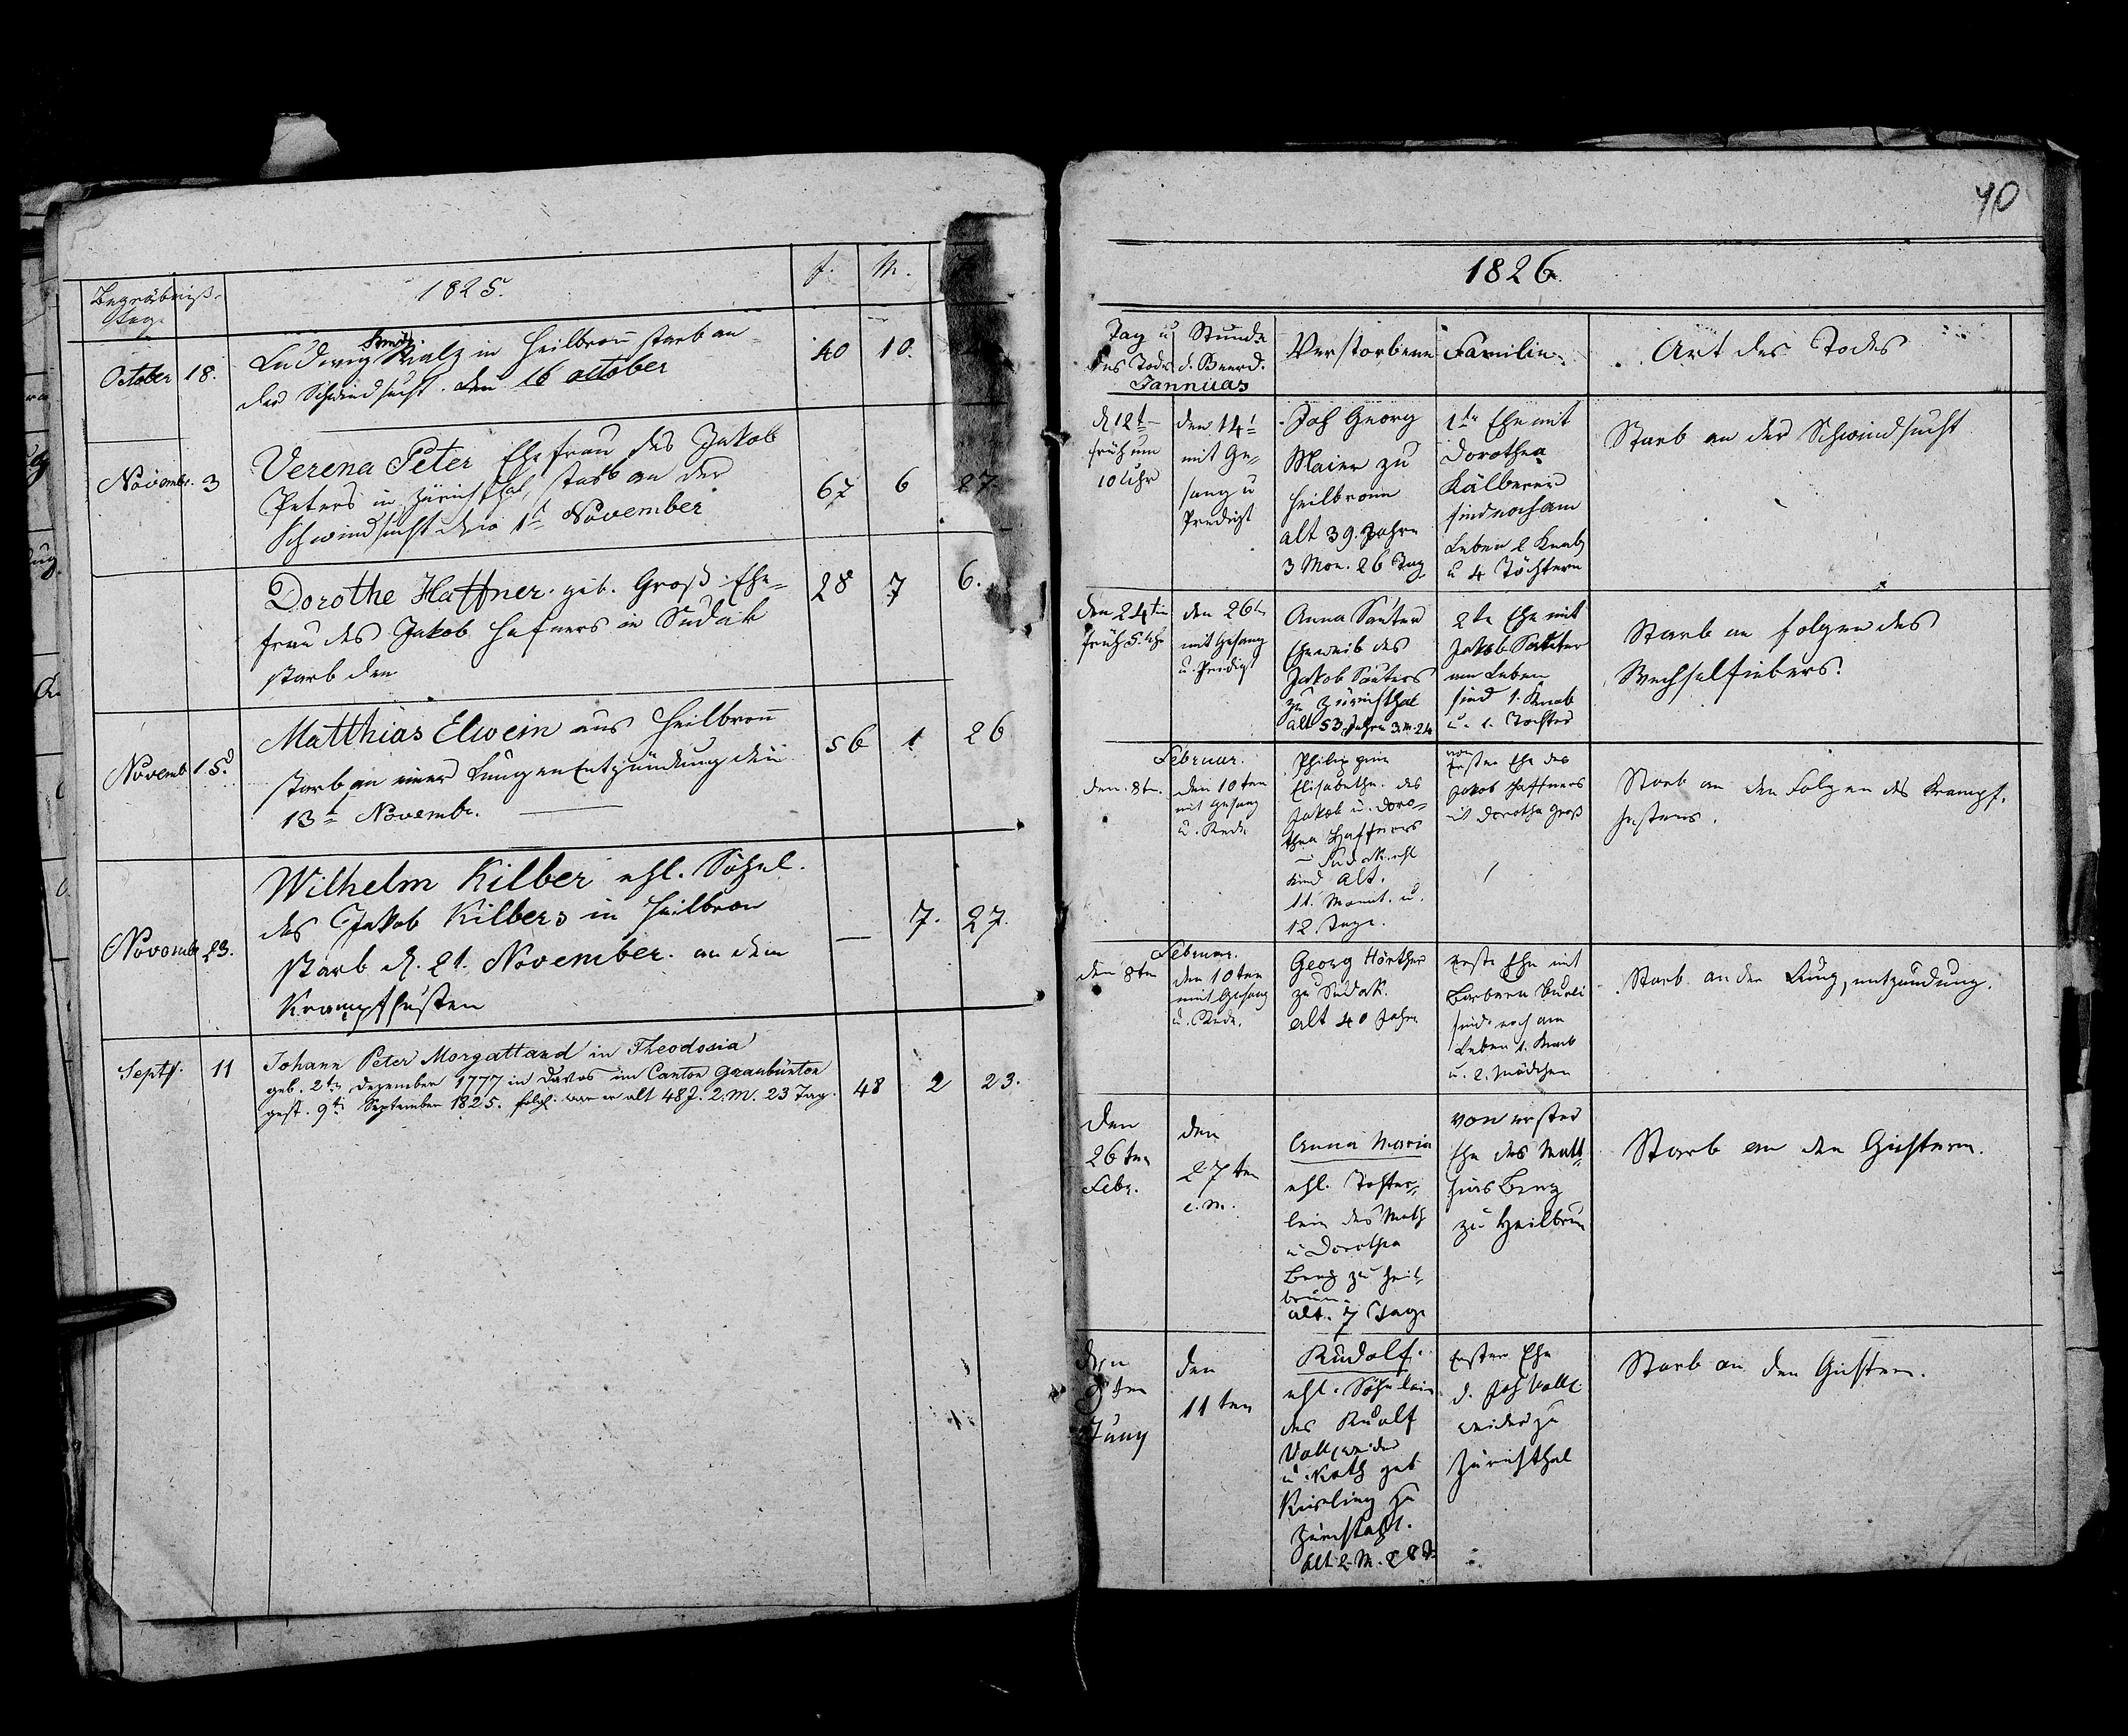 Begräbniß-
Tag.
1825.
J.
M.
October 18.
Ludwig Walz in Heilbron̄ starb an
der Schwindsucht. den 16 october
40 10.
Novembr. 3
Verena Peter Ehefrau des Jakob
Peters in Zürichthal, starb an der
Schwindsucht den 1t November
67 6 27.
Dorothe Haffner. geb. Groß Ehe-
frau des Jakob Hafners in Sudak
starb den
28 7 6.
Novemb 15.
Matthias Elwein aus Heilbron̄
starb an einer Lungen Entzündung den
13t Novembr.
56 1 26
Novemb 23.
Wilhelm Kilber ehl. Söhnl.
des Jakob Kilbers in Heilbron
starb d. 21. November. an dem
Krampfhusten
— 7. 27.
Septr. 11
Johann Peter Morgattand in Theodosia
geb. 2ten Dezember 1777 in Davos im Canton Graubünten
gest. 9t September 1825. folgl. war er alt 48 J. 2. M. 23 Tag.
48 2 23.
40
1826.
Tag u Stunde
des Tods d. Beerd.
Verstorbene
Familie
Art des Todes
Jannuar
d 12t
früh um
10 Uhr
den 14t
mit Ge-
sang u
Predigt
Joh Georg
Maier zu
Heilbronn
alt 39. Jahre
3 Mon. 26 Tag
1te Ehe mit
Dorothea
Kälberer
sind noch am
Leben 2 Knab
u 4 Töchtern
Starb an der Schwindsucht
den 24ten
früh 5. Uhr
den 26ten
mit Gesang
u. Predigt
Anna Sauter
Eheweib des
Jakob Sauters
zu Zürichthal
alt 53. Jahre 3. M. 24
2te Ehe mit
Jakob Sautter
am Leben
sind 1. Knab
u. 1. Tochter
Starb an folgen des
Wechselfiebers.
Februar.
den 8ten.
den 10ten
mit Gesang
u. Rede
Philippine
Elisabetha. des
Jakob u. Doro-
thea Haffners
Sudak. ehl
Kind alt.
11. Monat. u.
12. Tage.
von
Erster Ehe des
Jakob Haffners
u Dorothe Groß
Starb an den Folgen des Krampf-
hustens.
Februar.
den 8ten
den 10ten
mit Gesang
u. Rede.
Georg Härther
zu Sudak.
alt 40 Jahre
Erste Ehe mit
Barbara Burli
sind noch am
Leben 1. Knab
u. 2. Mädchen
Starb an der Lung, entzündung.
den
26ten
Febr.
den
27ten
e. m.
Anna Maria
ehl. Töchter-
lein des Math
u Dorothea
Benz zu Heil-
brun.
alt. 7 Tage
von erster
Ehe des Matt-
hias Benz
zu Heilbrun
Starb an den Gichtern.
den
9ten
Juny
den
11ten
Rudolf.
ehl. Söhnlein
des Rudolf
Vollweider
u. Kath geb
Kiesling zu
Zürichthal.
alt 2 M. 28 T.
Erster Ehe
d. Joh Voll-
weider zu
Zürichthal
Starb an den Gichtern.